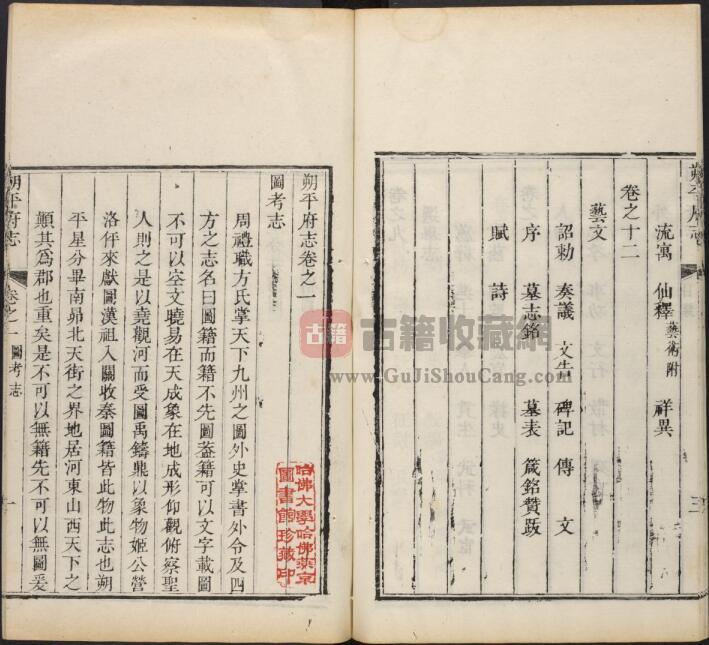 朔平府志
三
流寓　仙釋藝術附　祥異
卷之十二
藝文
詔勅　奏議　文告　碑記　傳　文
序　墓志銘　墓表　箴銘贊跋
賦　詩
朔平府志卷之一
圖考志
周禮職方氏掌天下九州之圖外史掌書外令及四
方之志名曰圖籍而籍不先圖葢籍可以文字載圖
不可以空文曉易在天成象在地成形仰觀俯察聖
人則之是以堯觀河而受圖禹鑄鼎以象物姬公營
洛伻來獻圖漢祖入關收秦圖籍皆此物此志也朔
平星分畢南昴北天街之界地居河東山西天下之
顛其為郡也重矣是不可以無籍先不可以無圖爰
朔平府志
卷之一　圖考志
一
哈佛大學哈佛燕京
圖書館珍藏印
古籍
古籍收藏網
www.GuJiShouCang.com